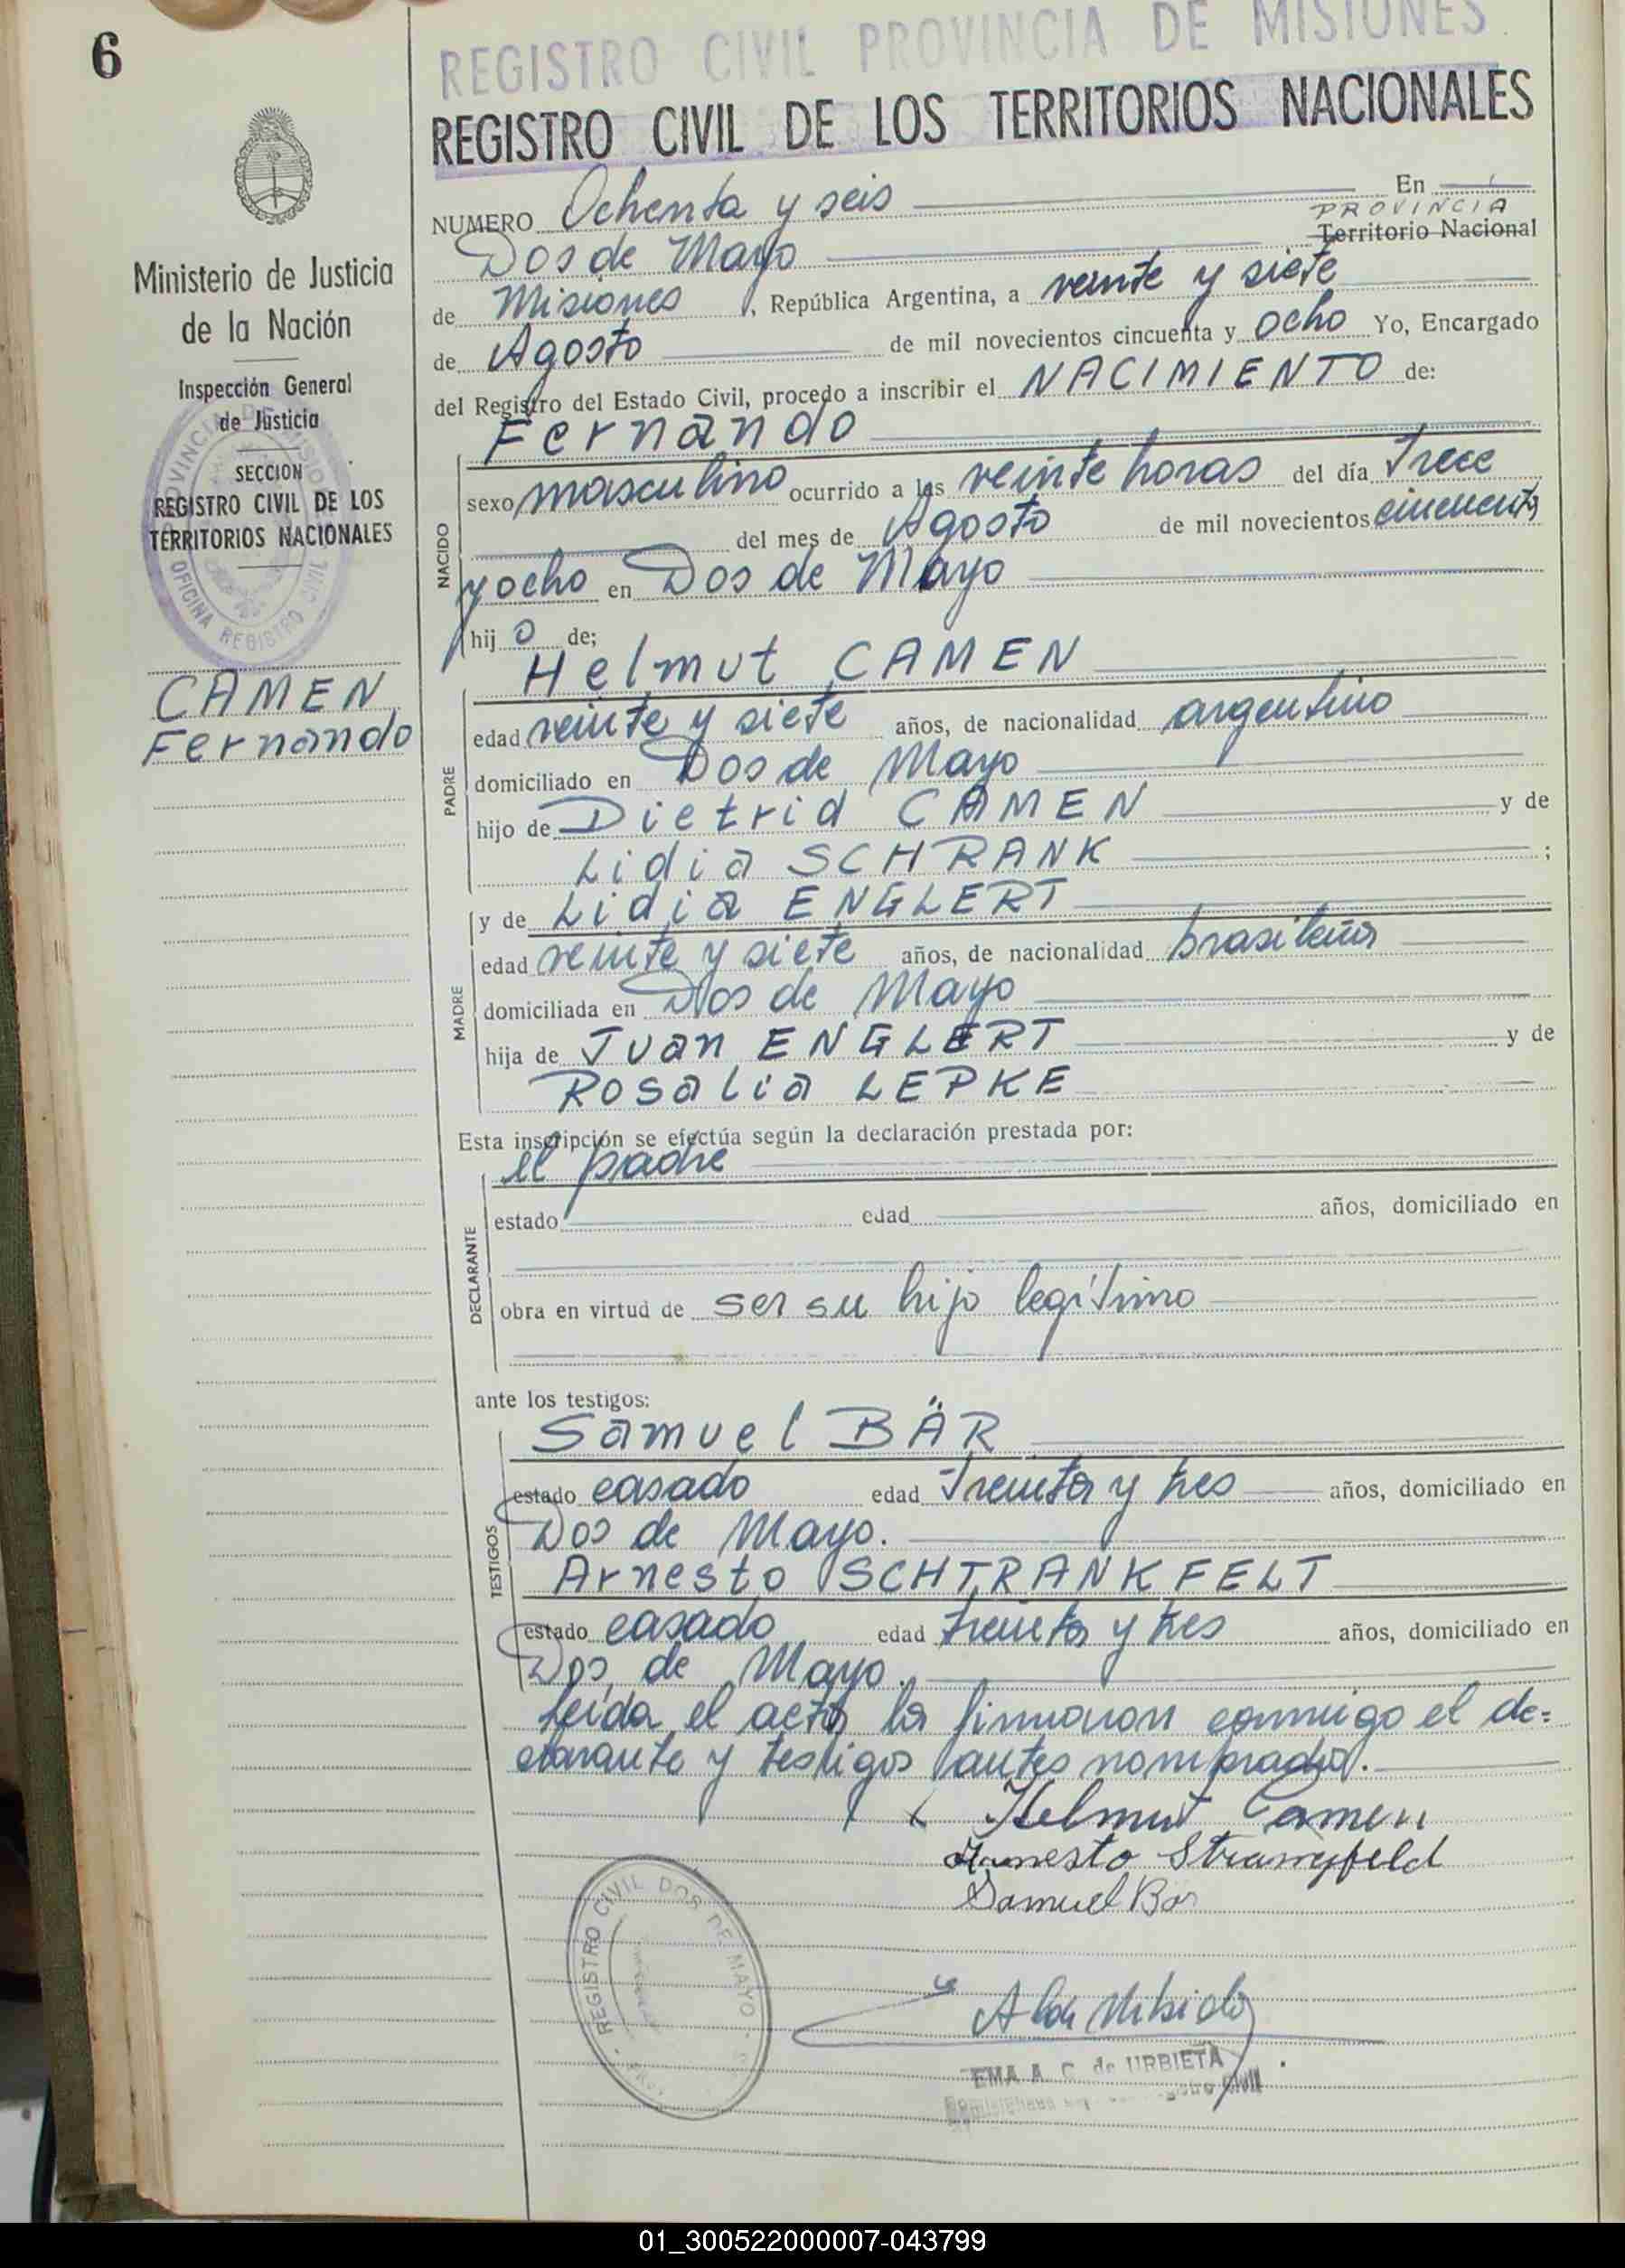 6
REGISTRO CIVIL PROVINCIA DE MISIONES
REGISTRO CIVIL DE LOS TERRITORIOS NACIONALES
Ministerio de Justicia
de la Nación
Inspección General
de Justicia
SECCION
REGISTRO CIVIL DE LOS
TERRITORIOS NACIONALES
PROVINCIA DE MISIONES
OFICINA REGISTRO CIVIL
CAMEN
Fernando
NUMERO Ochenta y seis En
PROVINCIA
Dos de Mayo Territorio Nacional
de Misiones, República Argentina, a veinte y siete
de Agosto de mil novecientos cincuenta y ocho Yo, Encargado
del Registro del Estado Civil, procedo a inscribir el NACIMIENTO de:
Fernando
NACIDO
sexo masculino ocurrido a las veinte horas del día Trece
del mes de Agosto de mil novecientos cincuenta
y ocho en Dos de Mayo
hij o de;
Helmut CAMEN
PADRE
edad veinte y siete años, de nacionalidad argentino
domiciliado en Dos de Mayo
hijo de Dietrid CAMEN y de
Lidia SCHRANK ;
y de Lidia ENGLERT
MADRE
edad veinte y siete años, de nacionalidad brasileña
domiciliada en Dos de Mayo
hija de Juan ENGLERT y de
Rosalia LEPKE
Esta inscripción se efectúa según la declaración prestada por:
el padre
DECLARANTE
estado edad años, domiciliado en
obra en virtud de ser su hijo legítimo
ante los testigos:
Samuel BÄR
TESTIGOS
estado casado edad Treinta y tres años, domiciliado en
Dos de Mayo.
Arnesto SCHTRANKFELT
estado casado edad treinta y tres años, domiciliado en
Dos de Mayo.
Leída el acta la firmaron conmigo el de=
clarante y testigos antes nombrados.
Helmut Camen
Arnesto Strangfeld
Samuel Bär
REGISTRO CIVIL DOS DE MAYO
EMA A. C. de URBIETA
Civil
01_300522000007-043799